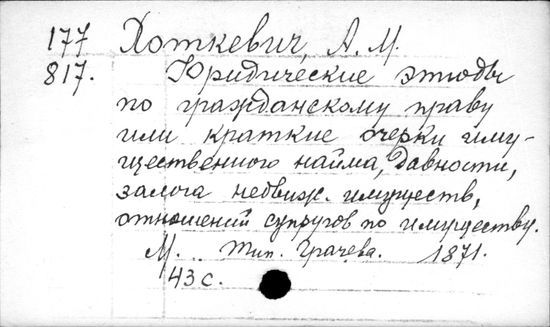 177 Хоткевич, А. М.
817. Юридические этюды
по гражданскому праву
или краткие очерки иму-
щественного найма, давности,
залога недвиж. имуществ,
отношений супругов по имуществу.
М. Тип. Грачева. 1871.
43 с.